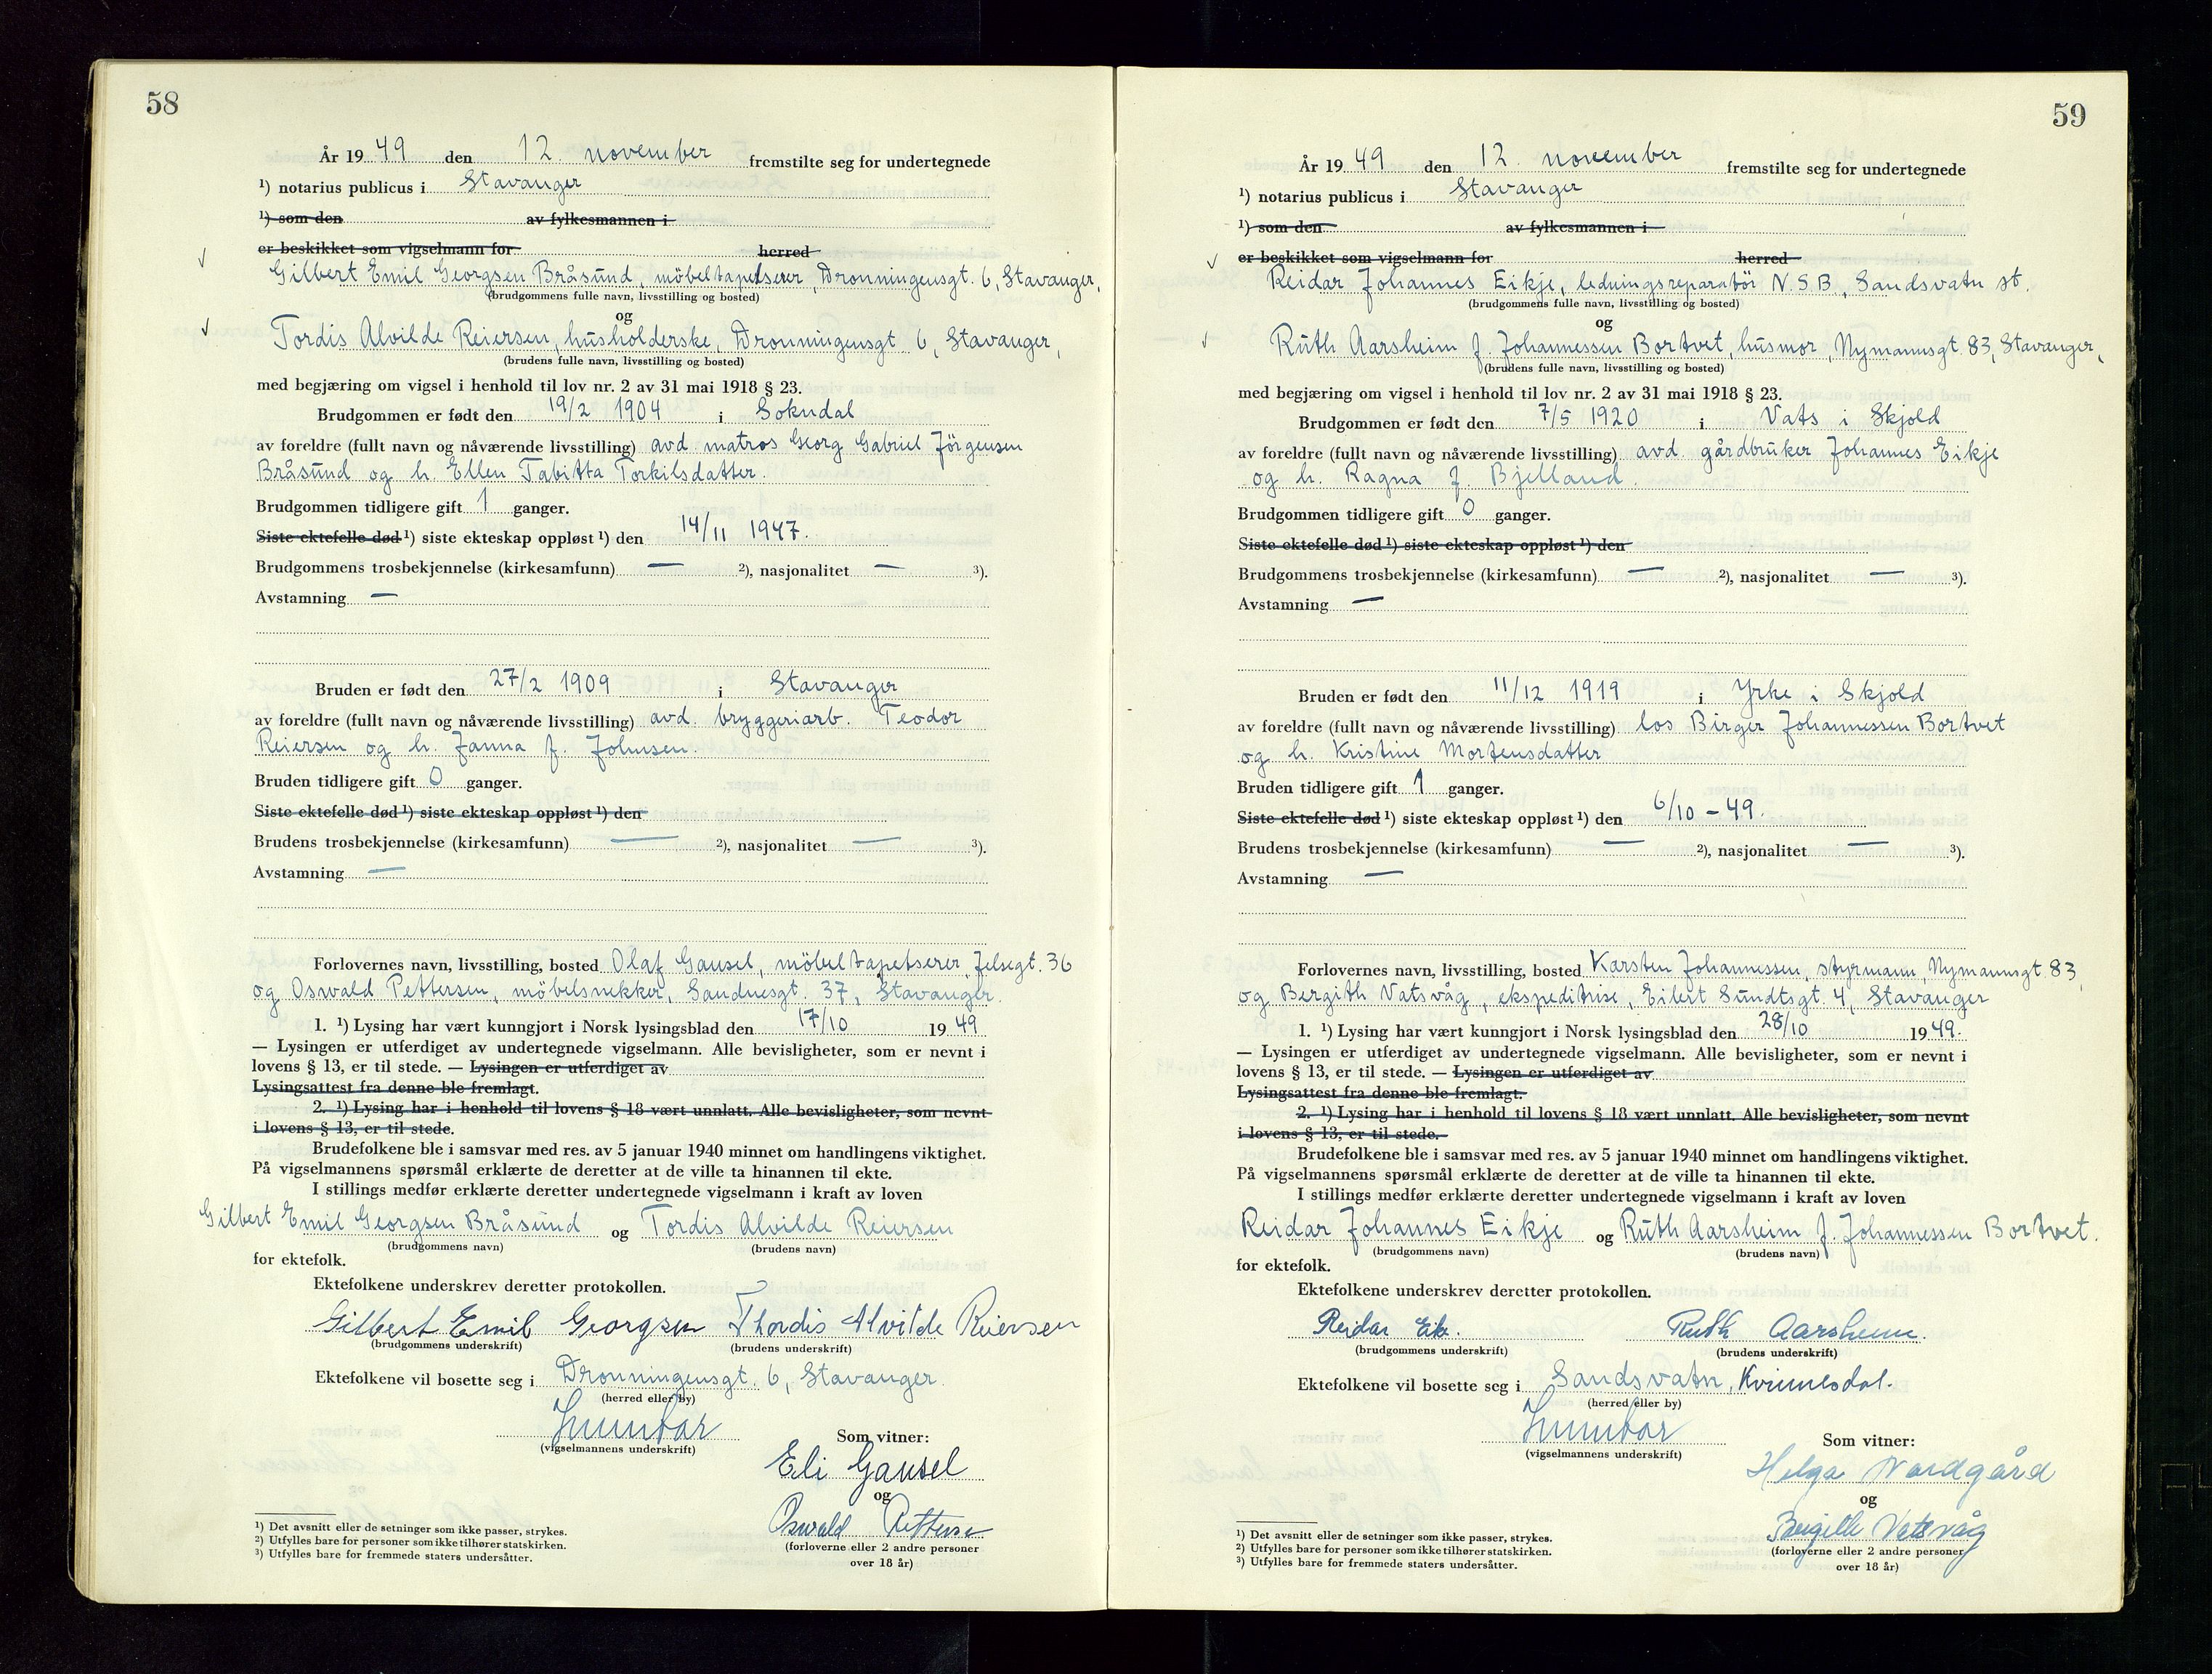 58
År 19 49 den 12. november fremstilte seg for undertegnede
¹) notarius publicus i Stavanger
¹) som den av fylkesmannen i
er beskikket som vigselmann for herred
Gilbert Emil Georgsen Bråsund, möbeltapetserer, Dronningensgt. 6, Stavanger,
(brudgommens fulle navn, livsstilling og bosted)
og
Tordis Alvilde Reiersen, husholderske, Dronningensgt 6, Stavanger,
(brudens fulle navn, livsstilling og bosted)
med begjæring om vigsel i henhold til lov nr. 2 av 31 mai 1918 § 23.
Brudgommen er født den 19/2 1904 i Sokndal
av foreldre (fullt navn og nåværende livsstilling) avd matros Georg Gabriel Jörgensen
Bråsund og h. Ellen Tabitta Torkilsdatter.
Brudgommen tidligere gift 1 ganger.
Siste ektefelle død ¹) siste ekteskap oppløst ¹) den 14/11 1947.
Brudgommens trosbekjennelse (kirkesamfunn) — ²), nasjonalitet — ³).
Avstamning —
Bruden er født den 27/2 1909 i Stavanger
av foreldre (fullt navn og nåværende livsstilling) avd. bryggeriarb. Teodor
Reiersen og h. Janna f. Johnsen.
Bruden tidligere gift 0 ganger.
Siste ektefelle død ¹) siste ekteskap oppløst ¹) den
Brudens trosbekjennelse (kirkesamfunn) — ²), nasjonalitet — ³).
Avstamning —
Forlovernes navn, livsstilling, bosted Olaf Gausel, möbeltapetserer, Jelsegt. 36
og Oswald Pettersen, möbelsnekker, Sandnesgt. 37, Stavanger.
1. ¹) Lysing har vært kunngjort i Norsk lysingsblad den 17/10 19 49
— Lysingen er utferdiget av undertegnede vigselmann. Alle bevisligheter, som er nevnt i
lovens § 13, er til stede. — Lysingen er utferdiget av
Lysingsattest fra denne ble fremlagt.
2. ¹) Lysing har i henhold til lovens § 18 vært unnlatt. Alle bevisligheter, som nevnt
i lovens § 13, er til stede.
Brudefolkene ble i samsvar med res. av 5 januar 1940 minnet om handlingens viktighet.
På vigselmannens spørsmål erklærte de deretter at de ville ta hinannen til ekte.
I stillings medfør erklærte deretter undertegnede vigselmann i kraft av loven
Gilbert Emil Georgsen Bråsund og Tordis Alvilde Reiersen
(brudgommens navn) (brudens navn)
for ektefolk.
Ektefolkene underskrev deretter protokollen.
Gilbert Emil Georgsen Thordis Alvilde Reiersen
(brudgommens underskrift) (brudens underskrift)
Ektefolkene vil bosette seg i Dronningensgt. 6, Stavanger.
(herred eller by)
(vigselmannens underskrift)
Som vitner:
Eli Gausel
og
Oswald Pettersen
(forloverne eller 2 andre personer
over 18 år)
¹) Det avsnitt eller de setninger som ikke passer, strykes.
²) Utfylles bare for personer som ikke tilhører statskirken.
³) Utfylles bare for fremmede staters undersåtter.
59
År 19 49 den 12. november fremstilte seg for undertegnede
¹) notarius publicus i Stavanger
¹) som den av fylkesmannen i
er beskikket som vigselmann for herred
Reidar Johannes Eikje, ledningsreparatör N.S.B., Sandsvatn st.
(brudgommens fulle navn, livsstilling og bosted)
og
Ruth Aarsheim f. Johannessen Bortvet, husmor, Nymannsgt. 83, Stavanger,
(brudens fulle navn, livsstilling og bosted)
med begjæring om vigsel i henhold til lov nr. 2 av 31 mai 1918 § 23.
Brudgommen er født den 7/5 1920 i Vats i Skjold
av foreldre (fullt navn og nåværende livsstilling) avd. gårdbruker Johannes Eikje
og h. Ragna f. Bjelland.
Brudgommen tidligere gift 0 ganger.
Siste ektefelle død ¹) siste ekteskap oppløst ¹) den
Brudgommens trosbekjennelse (kirkesamfunn) — ²), nasjonalitet — ³).
Avstamning —
Bruden er født den 11/12 1919 i Yrke i Skjold
av foreldre (fullt navn og nåværende livsstilling) los Birger Johannessen Bortvet
og h. Kristine Mortensdatter
Bruden tidligere gift 1 ganger.
Siste ektefelle død ¹) siste ekteskap oppløst ¹) den 6/10 - 49.
Brudens trosbekjennelse (kirkesamfunn) — ²), nasjonalitet — ³).
Avstamning —
Forlovernes navn, livsstilling, bosted Karsten Johannessen, styrmann, Nymannsgt 83,
og Bergith Vatsvåg, ekspeditrise, Eilert Sundtsgt. 4, Stavanger
1. ¹) Lysing har vært kunngjort i Norsk lysingsblad den 28/10 19 49.
— Lysingen er utferdiget av undertegnede vigselmann. Alle bevisligheter, som er nevnt i
lovens § 13, er til stede. — Lysingen er utferdiget av
Lysingsattest fra denne ble fremlagt.
2. ¹) Lysing har i henhold til lovens § 18 vært unnlatt. Alle bevisligheter, som nevnt
i lovens § 13, er til stede.
Brudefolkene ble i samsvar med res. av 5 januar 1940 minnet om handlingens viktighet.
På vigselmannens spørsmål erklærte de deretter at de ville ta hinannen til ekte.
I stillings medfør erklærte deretter undertegnede vigselmann i kraft av loven
Reidar Johannes Eikje og Ruth Aarsheim f. Johannessen Bortvet.
(brudgommens navn) (brudens navn)
for ektefolk.
Ektefolkene underskrev deretter protokollen.
Reidar Eik. Ruth Aarsheim.
(brudgommens underskrift) (brudens underskrift)
Ektefolkene vil bosette seg i Sandsvatn, Kvinnesdal.
(herred eller by)
(vigselmannens underskrift)
Som vitner:
Helga Nordgård
og
Bergith Vatsvåg
(forloverne eller 2 andre personer
over 18 år)
¹) Det avsnitt eller de setninger som ikke passer, strykes.
²) Utfylles bare for personer som ikke tilhører statskirken.
³) Utfylles bare for fremmede staters undersåtter.